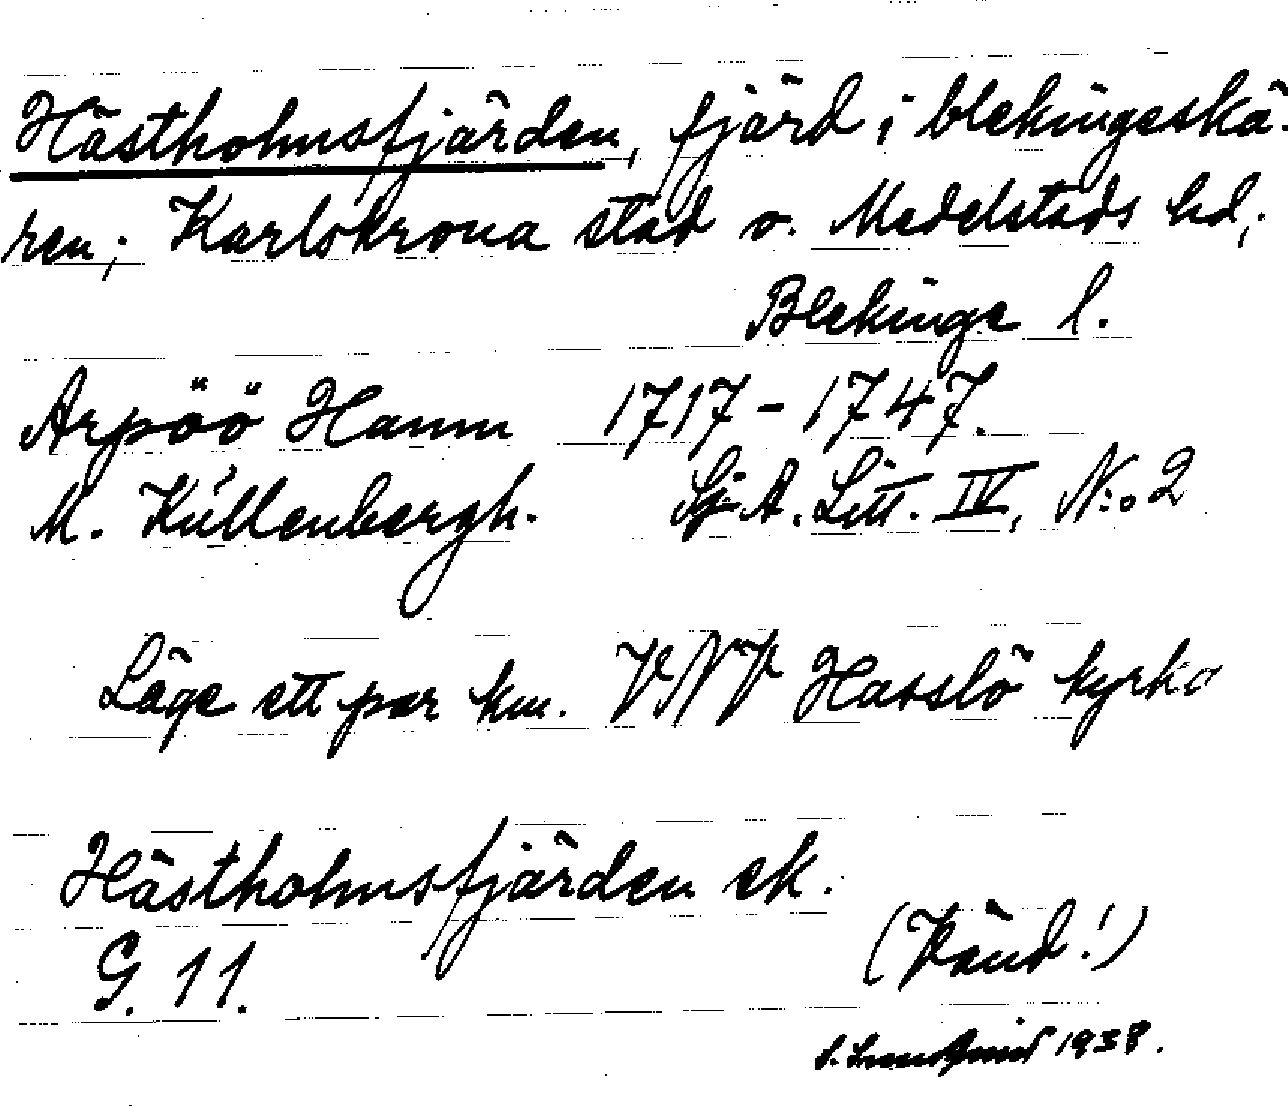 Hästholmsfjärden, fjärd i blekingeskä-
ren; Karlskrona stad o. Medelstads hd;
Blekinge l.
Arpöö Hamn 1717-1747.
M. Küllenbergh. Sj. A. Litt. IV, N:o 2
Läge ett par km. VNV Hasslö kyrka
Hästholmsfjärden ek.
G. 11.
(Vänd!)
1938.